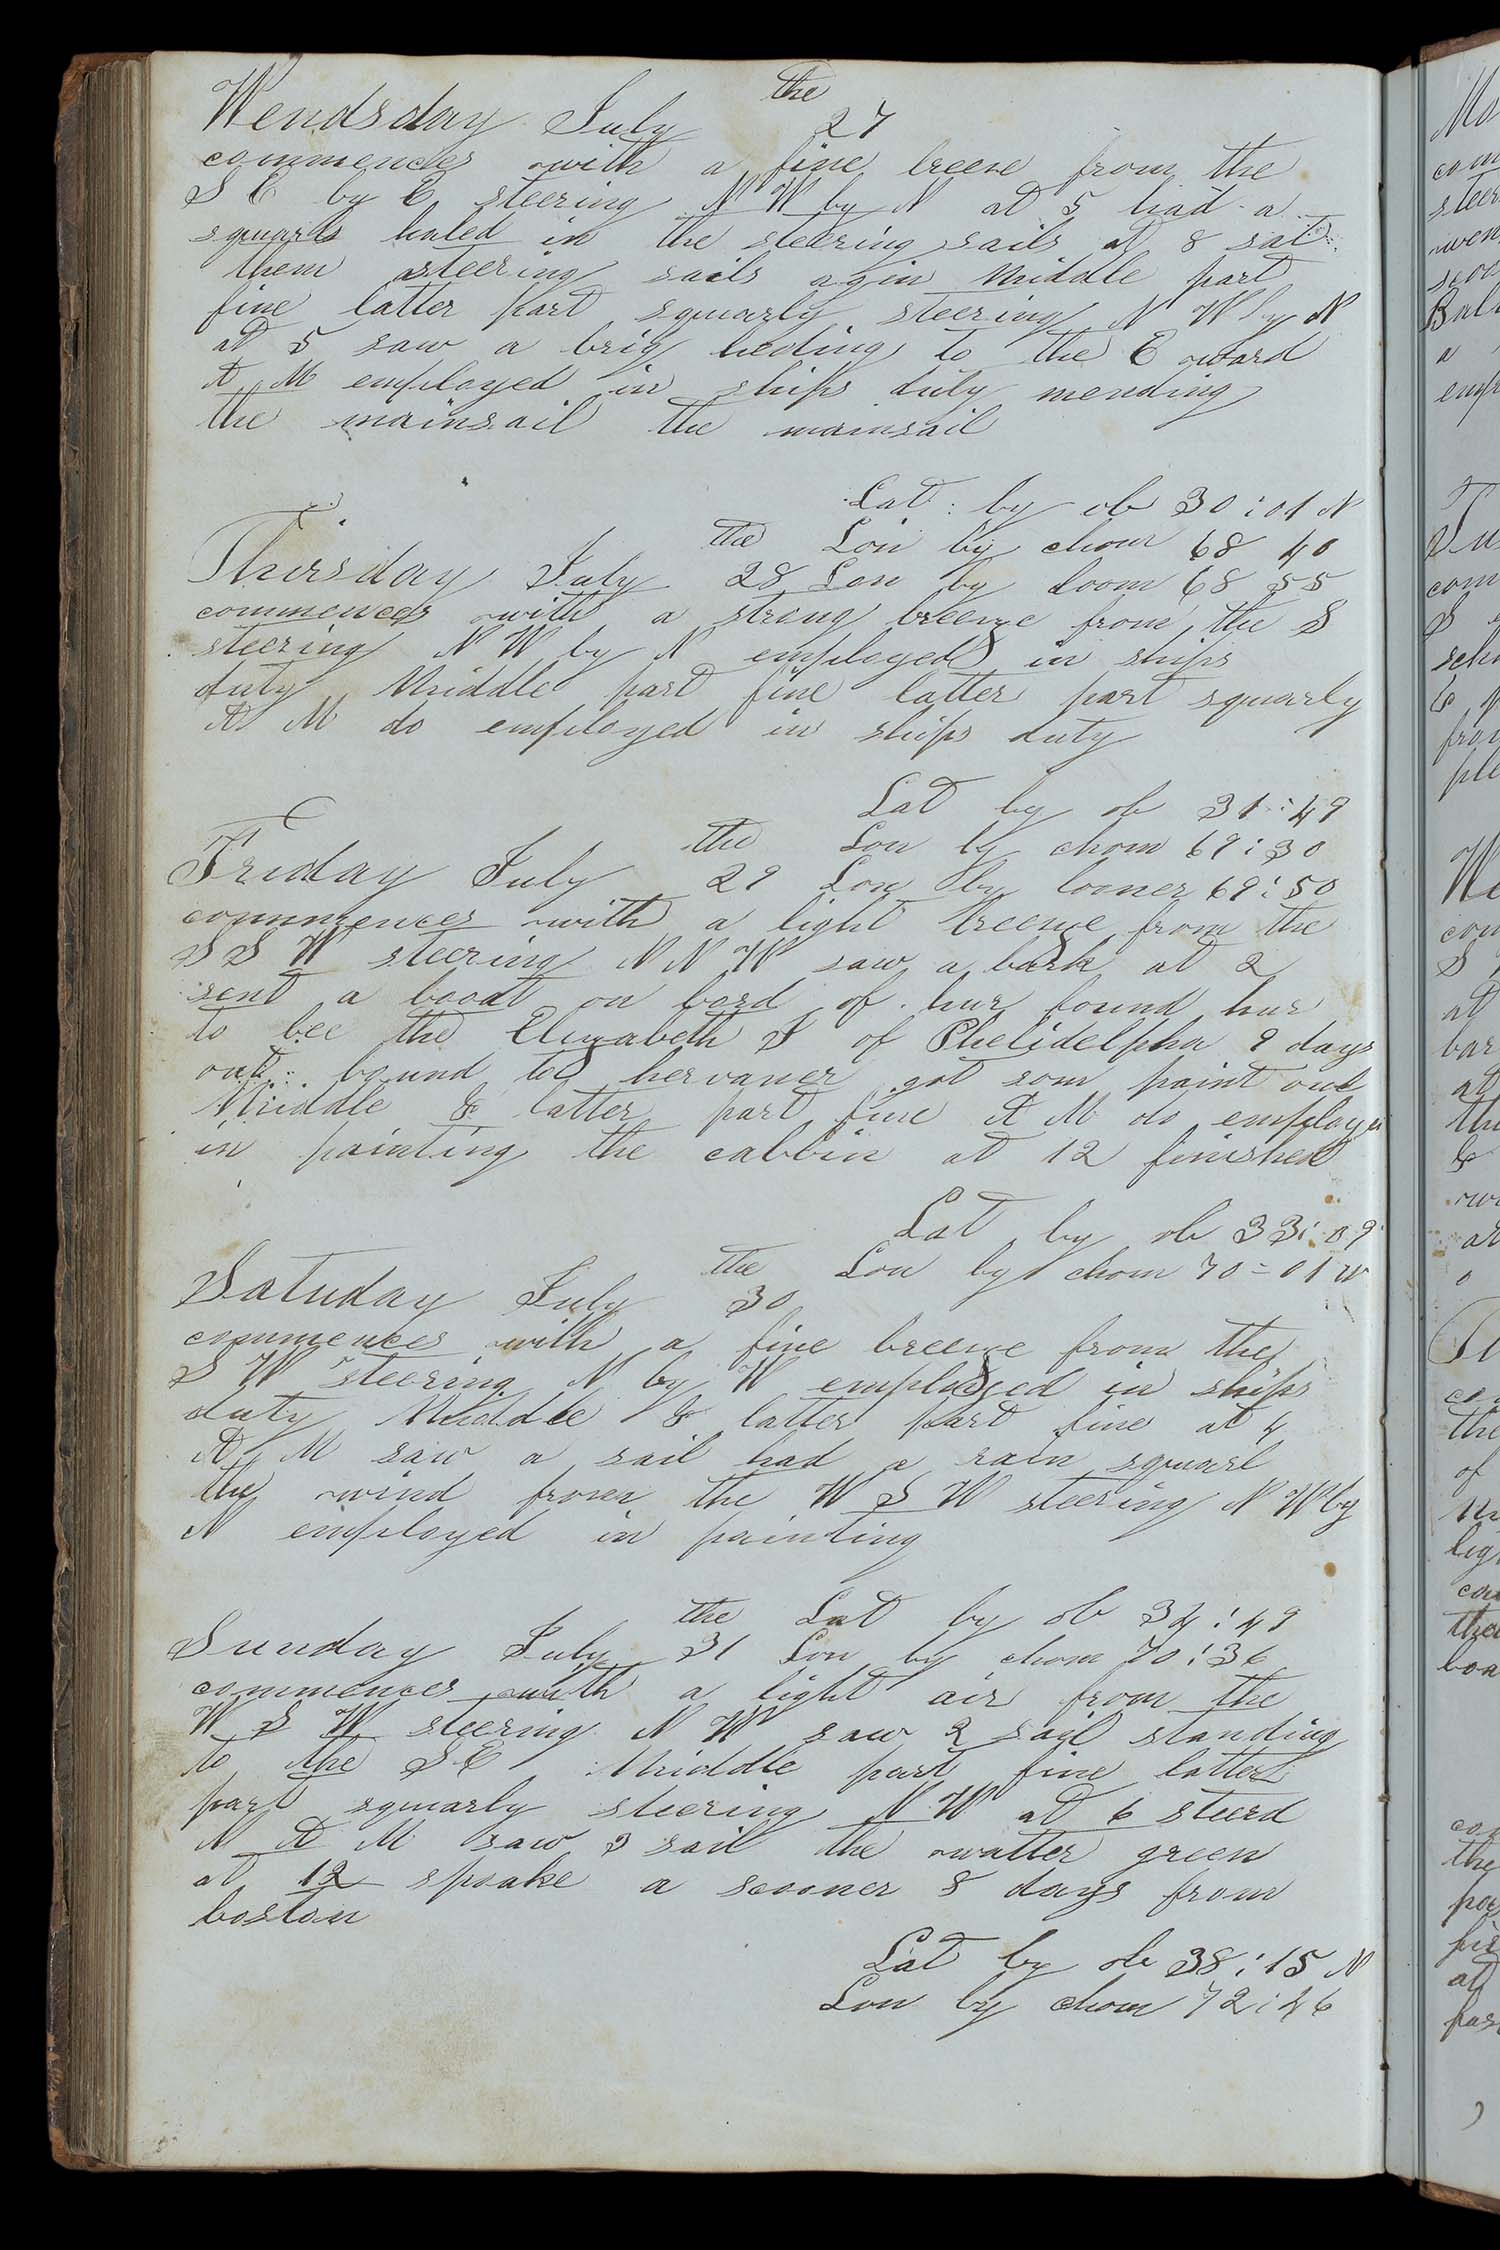 Wendsday July the 27
commences with a fine breeze from the
S E by E steering N W by N at 5 had a
squarls haled in the steering sails at 8 sat
them steering sails agin Middle part
fine latter part squarly steering N W by N
at 5 saw a brig heding to the E ward
A M employed in ships duty mending
the mainsail the mainsail
Lat by ob 30:01 N
Lon by chom 68 40
Thirsday July the 28 Lon by loom 68 55
commences with a strong breeze from the S
steering N W by N employed in ships
duty Middle part fine latter part squarly
A M do employed in ships duty
Lat by ob 31:49
Lon by chom 69:30
Friday July the 29 Lon by looner 69:50
commences with a light breeze from the
S S W steering N N W saw a bark at 2
sent a booat on bord of hur found hur
to bee the Elizabeth J of Phelidelpha 9 days
out bound to hervaner got som paint out
Middle & latter part fine A M do employed
in painting the cabbin at 12 finished
Lat by ob 33:09
Lon by chom 70=01 W
Satuday July the 30
commences with a fine breeze from the
S W steering N by W employed in ships
duty Middle & latter part fine at 4
A M saw a sail had a rain squarl
the wind from the W S W steering N W by
N employed in painting
Lat by ob 34:49
Sunday July the 31 Lon by chom 70:36
commences with a light air from the
W S W steering N W saw 2 sail standing
to the S E Middle part fine latter
part squarly steering N W at 6 steerd
N A M saw 3 sail the watter green
at 12 spoake a scooner 8 days from
boston
Lat by ob 38:15 N
Lon by chom 72:46